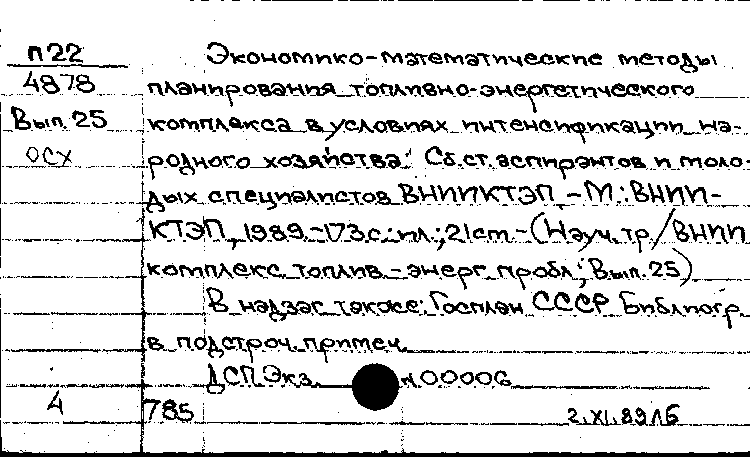 п22 Экономико-математические методы
4878 планирования топливно-энергетического
Вып. 25 комплекса в условиях интенсификации на-
ОСХ родного хозяйства: Сб. ст. аспирантов и моло-
дых специалистов ВНИИКТЭП. - М.: ВНИИ-
КТЭП, 1989. - 173 с.: ил.; 21 см - (Науч. тр / ВНИИ
комплекс. топлив.-энерг. пробл.; Вып. 25)
В надзаг. также: Госплан СССР. Библиогр.
в подстроч. примеч.
ДСП. Экз. н. 00006
4 785 2.XI.89 ЛБ